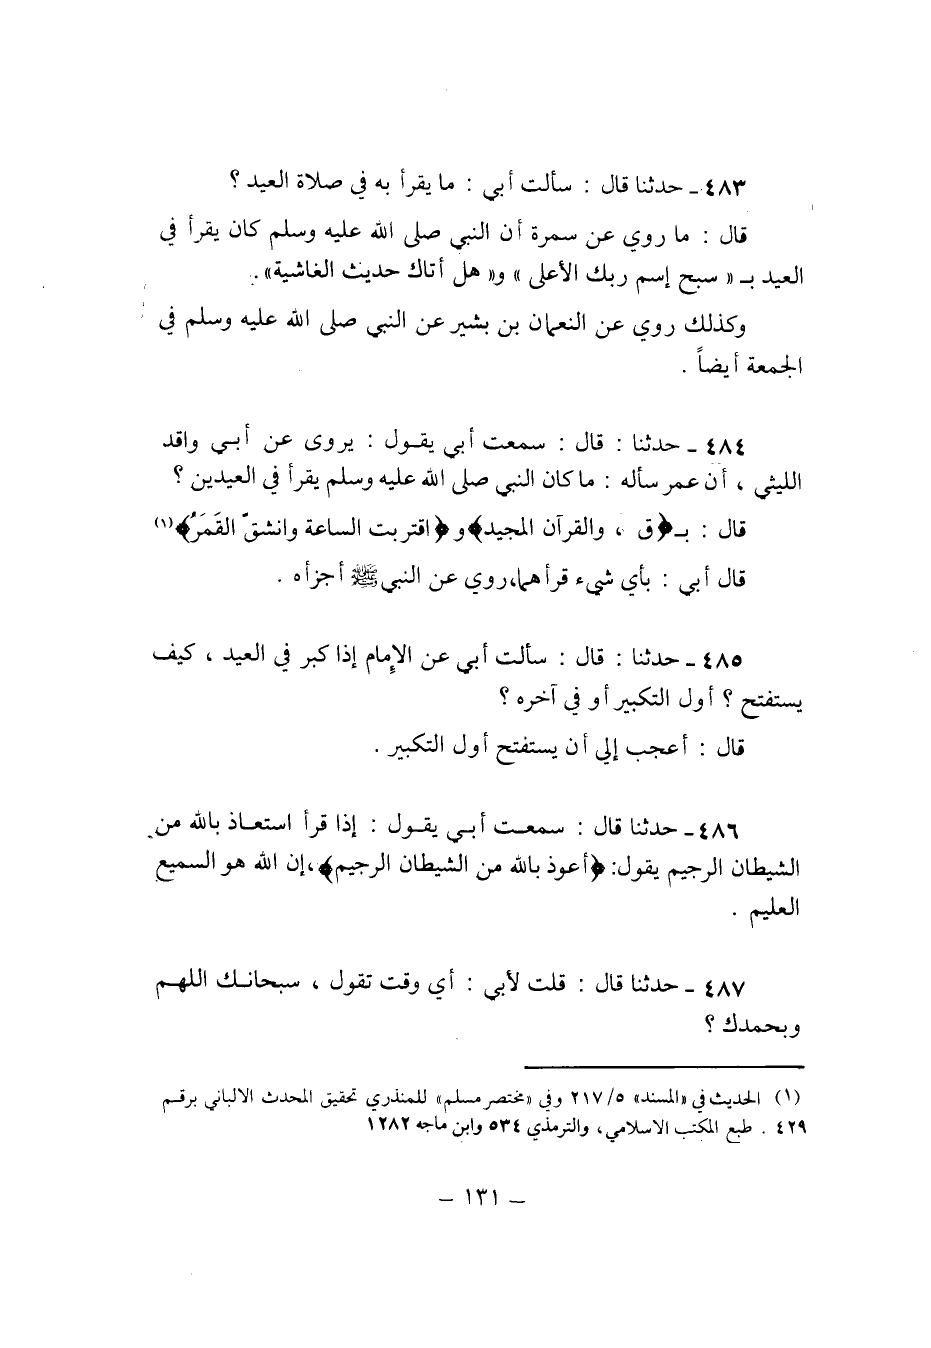 ٤٨٣ ـ حدثنا قال : سألت أبي : ما يقرأ به في صلاة العيد ؟
قال : ما روي عن سمرة أن النبي صلى الله عليه وسلم كان يقرأ في
العيد بـ « سبح إسم ربك الأعلى » و« هل أتاك حديث الغاشية» .
وكذلك روي عن النعمان بن بشير عن النبي صلى الله عليه وسلم في
الجمعة أيضاً .
٤٨٤ ـ حدثنا : قال : سمعت أبي يقول : يروى عن أبي واقد
الليثي ، أن عمر سأله : ما كان النبي صلى الله عليه وسلم يقرأ في العيدين ؟
قال : بـ ﴿ق ، والقرآن المجيد﴾ و ﴿اقتربت الساعة وانشقّ القَمَرُ﴾(١)
قال أبي : بأي شيء قرأ هما،روي عن النبي ﷺ أجزأه .
٤٨٥ ـ حدثنا : قال : سألت أبي عن الإمام إذا كبر في العيد ، كيف
يستفتح ؟ أول التكبير أو في آخره ؟
قال : أعجب إلي أن يستفتح أول التكبير .
٤٨٦ ـ حدثنا قال : سمعت أبي يقول : إذا قرأ استعاذ بالله من
الشيطان الرجيم يقول: ﴿أعوذ بالله من الشيطان الرجيم﴾،إن الله هو السميع
العليم .
٤٨٧ ـ حدثنا قال : قلت لأبي : أي وقت تقول ، سبحانك اللهم
وبحمدك ؟
(١) الحديث في «المسند» ٢١٧/٥ وفي «مختصر مسلم» للمنذري تحقيق المحدث الالباني برقم
٤٢٩ . طبع المكتب الاسلامي، والترمذي ٥٣٤ وابن ماجه ١٢٨٢
ـ ١٣١ ـ